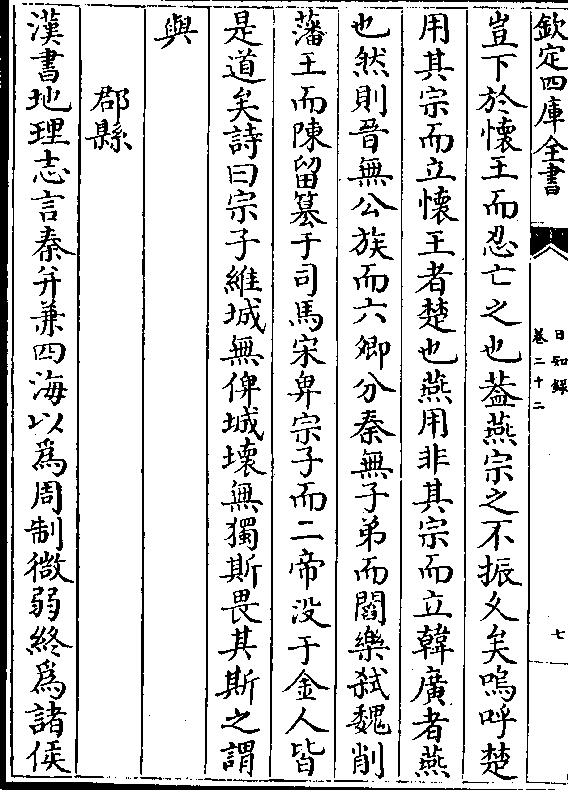 欽定四庫全書
日知錄
卷二十二
七
豈下於懐王而忍亡之也葢燕宗之不振久矣嗚呼楚
用其宗而立懐王者楚也燕用非其宗而立韓廣者燕
也然則晉無公族而六卿分秦無子弟而閻樂弑魏削
藩王而陳留篡于司馬宋卑宗子而二帝没于金人皆
是道矣詩曰宗子維城無俾城壊無獨斯畏其斯之謂
與
郡縣
漢書地理志言秦并兼四海以為周制微弱終為諸侯